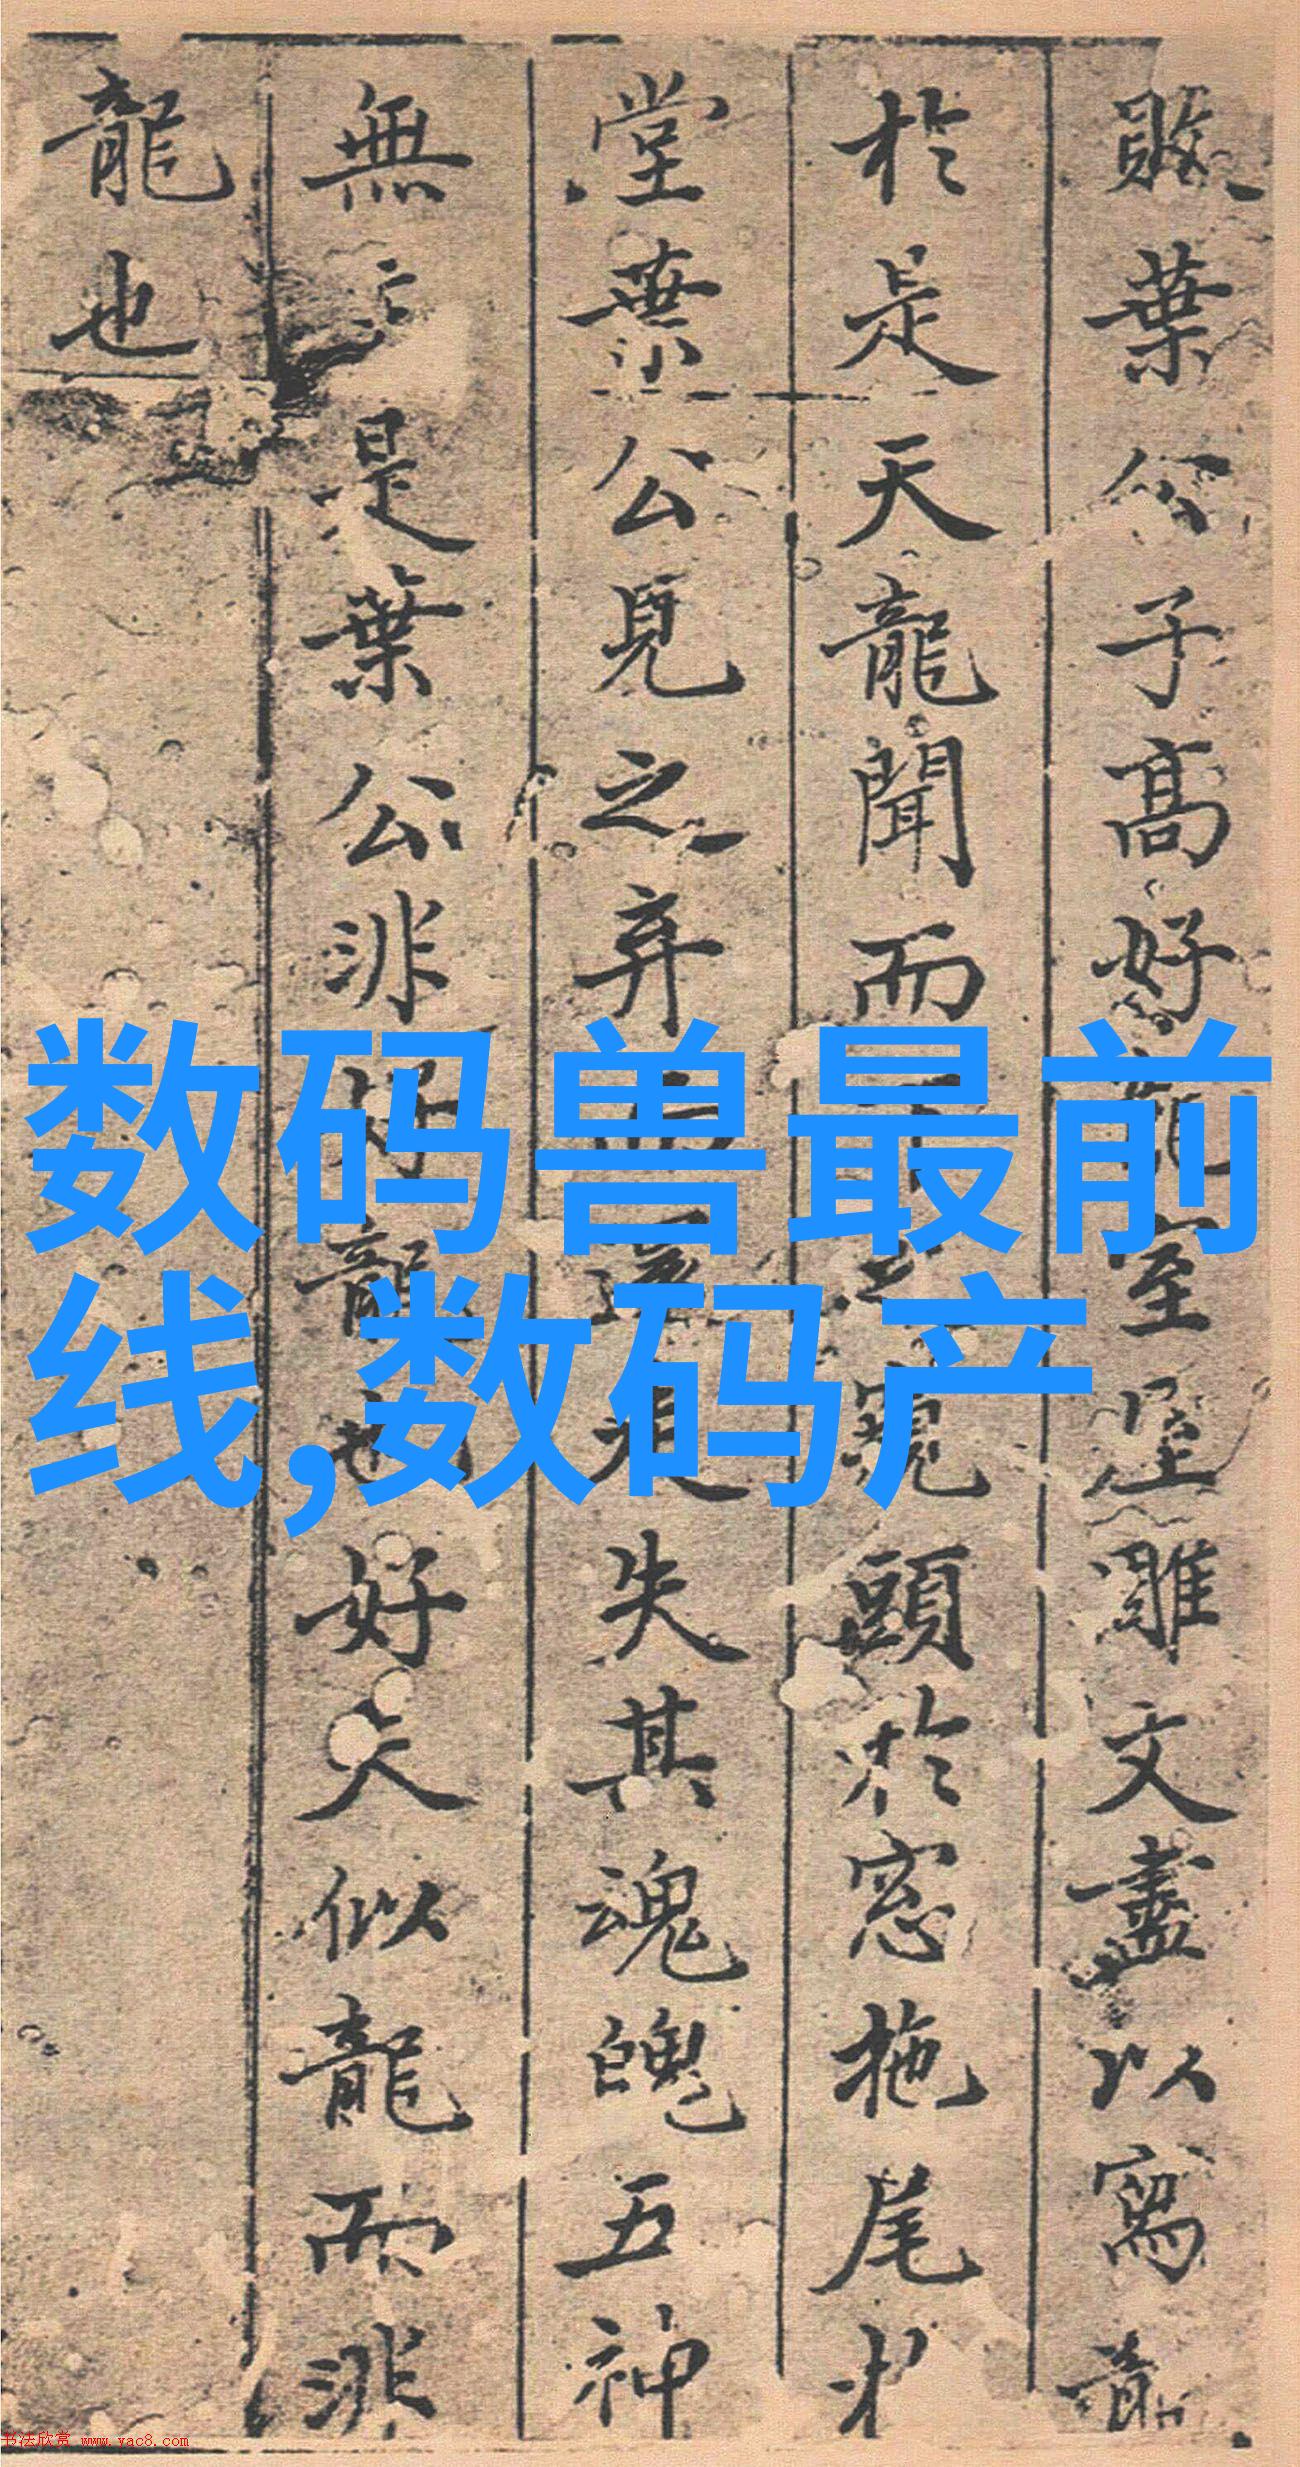 敗葉公子高好龍室屋雕文盡以寫龍
於是天龍聞而下之窺頭於窓拖尾於
堂葉公見之弃而還走失其魂魄五神
無主是葉公非好龍也好夫似龍而非
龍也
数码兽最前
线,数码产
书法欣赏 www.yac8.com